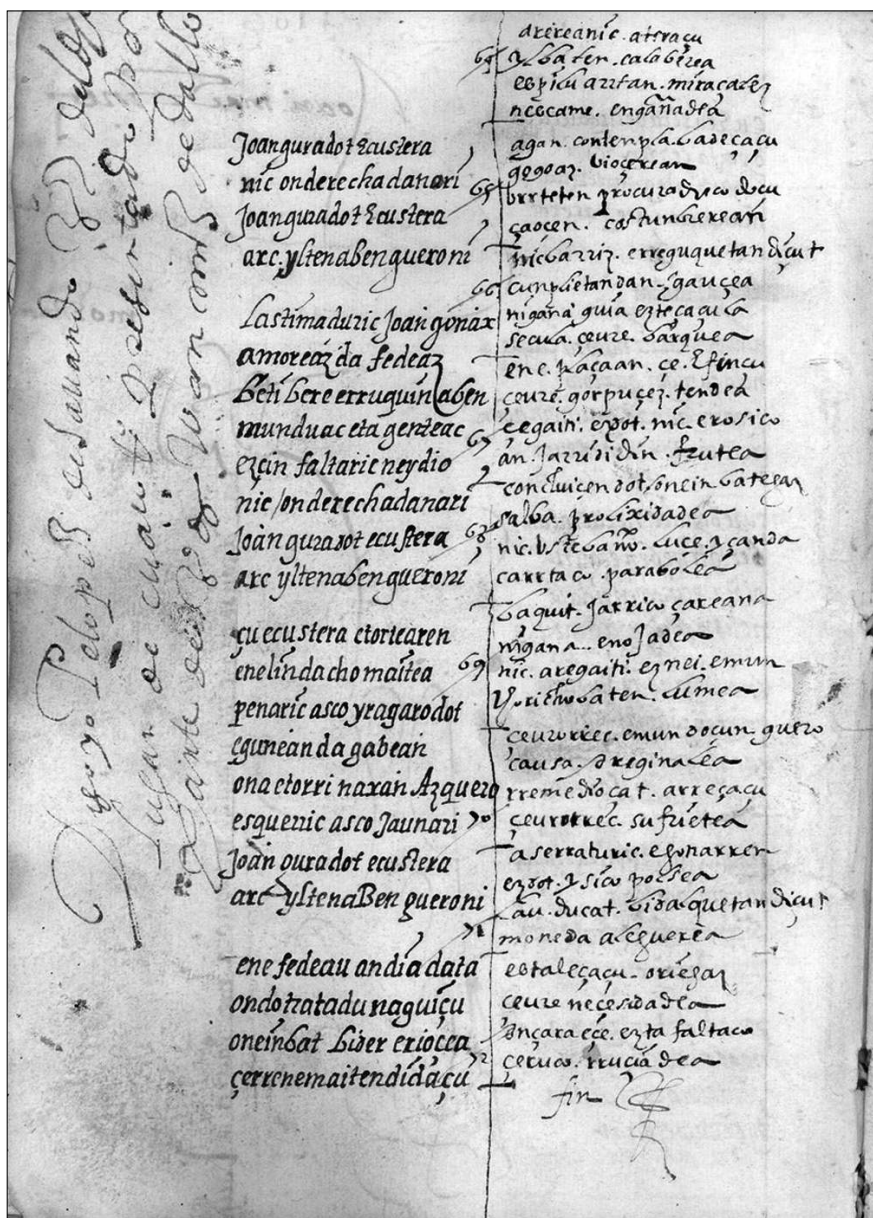 Joanguradot Ecustera
nic onderechadanari
Joanguradot Ecustera
arc. yltenabengueroni
Lastimaduric Joan gonax
amoreaz da fedeaz
beti bere erruquin aben
munduac eta genteac
ezcin faltaric neydio
nic onderechadanari
Joan guradot ecustera
arc yltenabengueroni
çu ecustera etortearen
enelindachomaitea
penaric asco yragarodot
egunean da gabean
ona etorri naxan Azquero
esquerric asco Jaunari
Joan guradot ecustera
arc yltenaBen gueroni
ene fedeau andia data
ondo tratadu naguiçu
oneinbat bider eriocca
çerrenemaitendidaçu
arereanic. ateraçu
64 ylbaten. calaberea
espilu arrtan. miracaten
necocame. engañadea
agan. contempla. badeçaçu
gogoaz. bioçerean
65 orrteten procuradizco docu
çaocen. costunbrerean
nicbarriz. erreguquetan diçut
66 cunplietandan. gauçea
nigana guia ezteçaçula
secula. çeure. barquea
ene. plaçaan. çe. Efincu
çeure. gorpuçez. tendea
çegaiti. ezpot. nic. erosico
67 an. Jarrididin. frutea
concluicen dot. onein bategaz
salba. prolixidadea
68 nic. luce. yçanda
carrtaco. parabolea
baquit. Jarrico çareana
nigana. enojadea
69 nic. aregaiti. eznei. emun
baten. lumea
çeurorrec. emun docun. guero
causa. oreginalea
rremediocat. arreçaçu
70 çeurorrec. sufrietea
aserraturic. egonarren
ezdot. ysico polsea
lau. ducat. bidalquetan diçut
71 moneda alguerea
estaleçaçu. oriegaz
çeure neçesidadea
onçaraece. ezta faltaco
72 çeruco. rruciadea
fin
Diego Pelopez
Lugar de presentado por